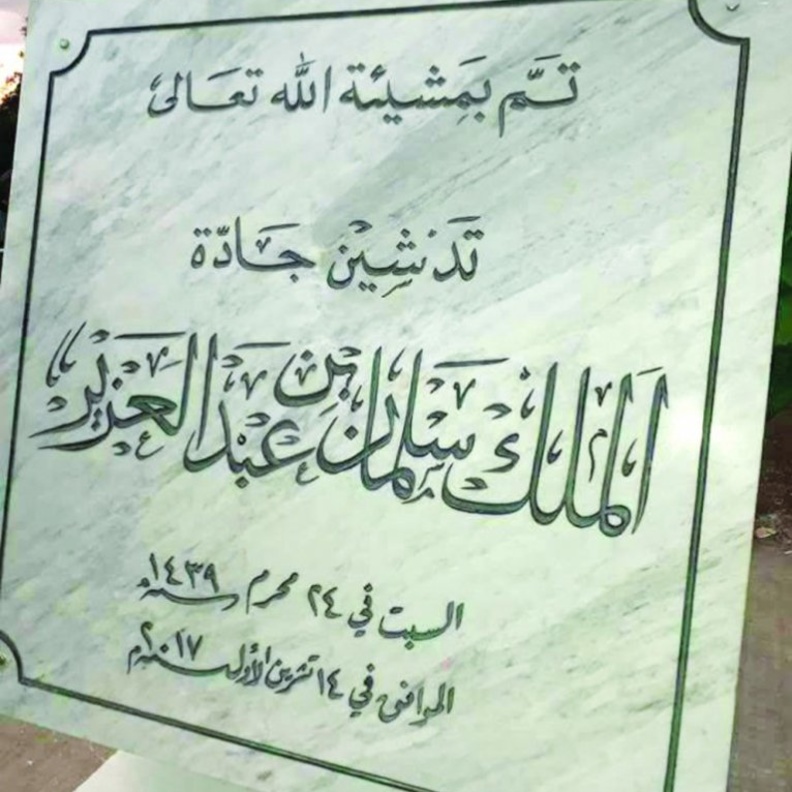 تَمَّ بمَشيئة الله تعَالىٰ
تَدشِين جَادّة
المَلك سَلمان بن عَبْد العَزيْز
السبت في ٢٤ محرم سنة ١٤٣٩هـ
الموافق في ١٤ تشرين الأول سنة ٢٠١٧م